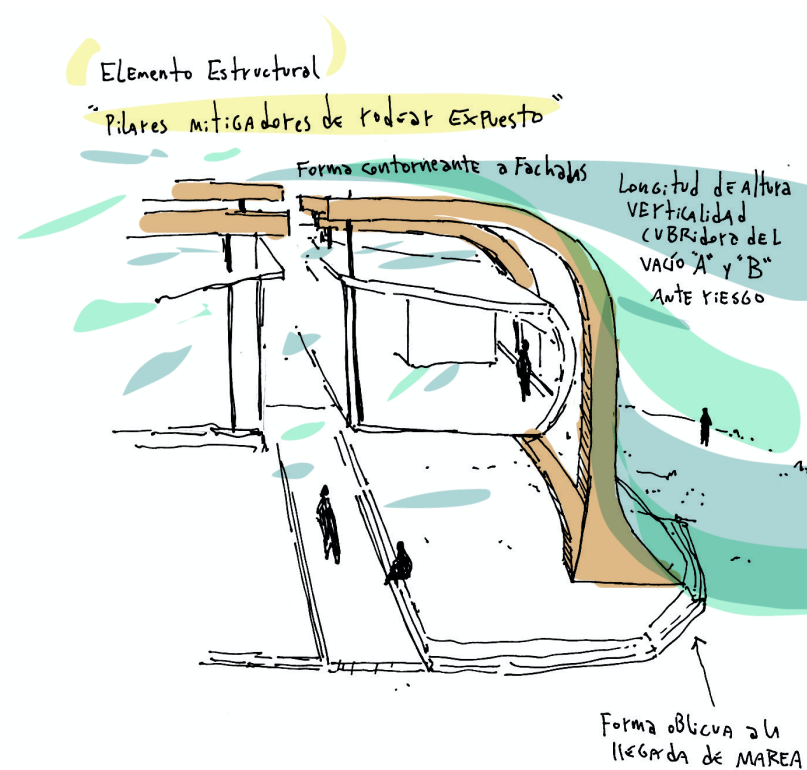 Elemento Estructural
"Pilares mitigadores de rodear Expuesto"
Forma contorneante a Fachadas
Longitud de Altura
Verticalidad
cubridora del
vacío "A" y "B"
Ante riesgo
Forma oblicua a la
llegada de MAREA